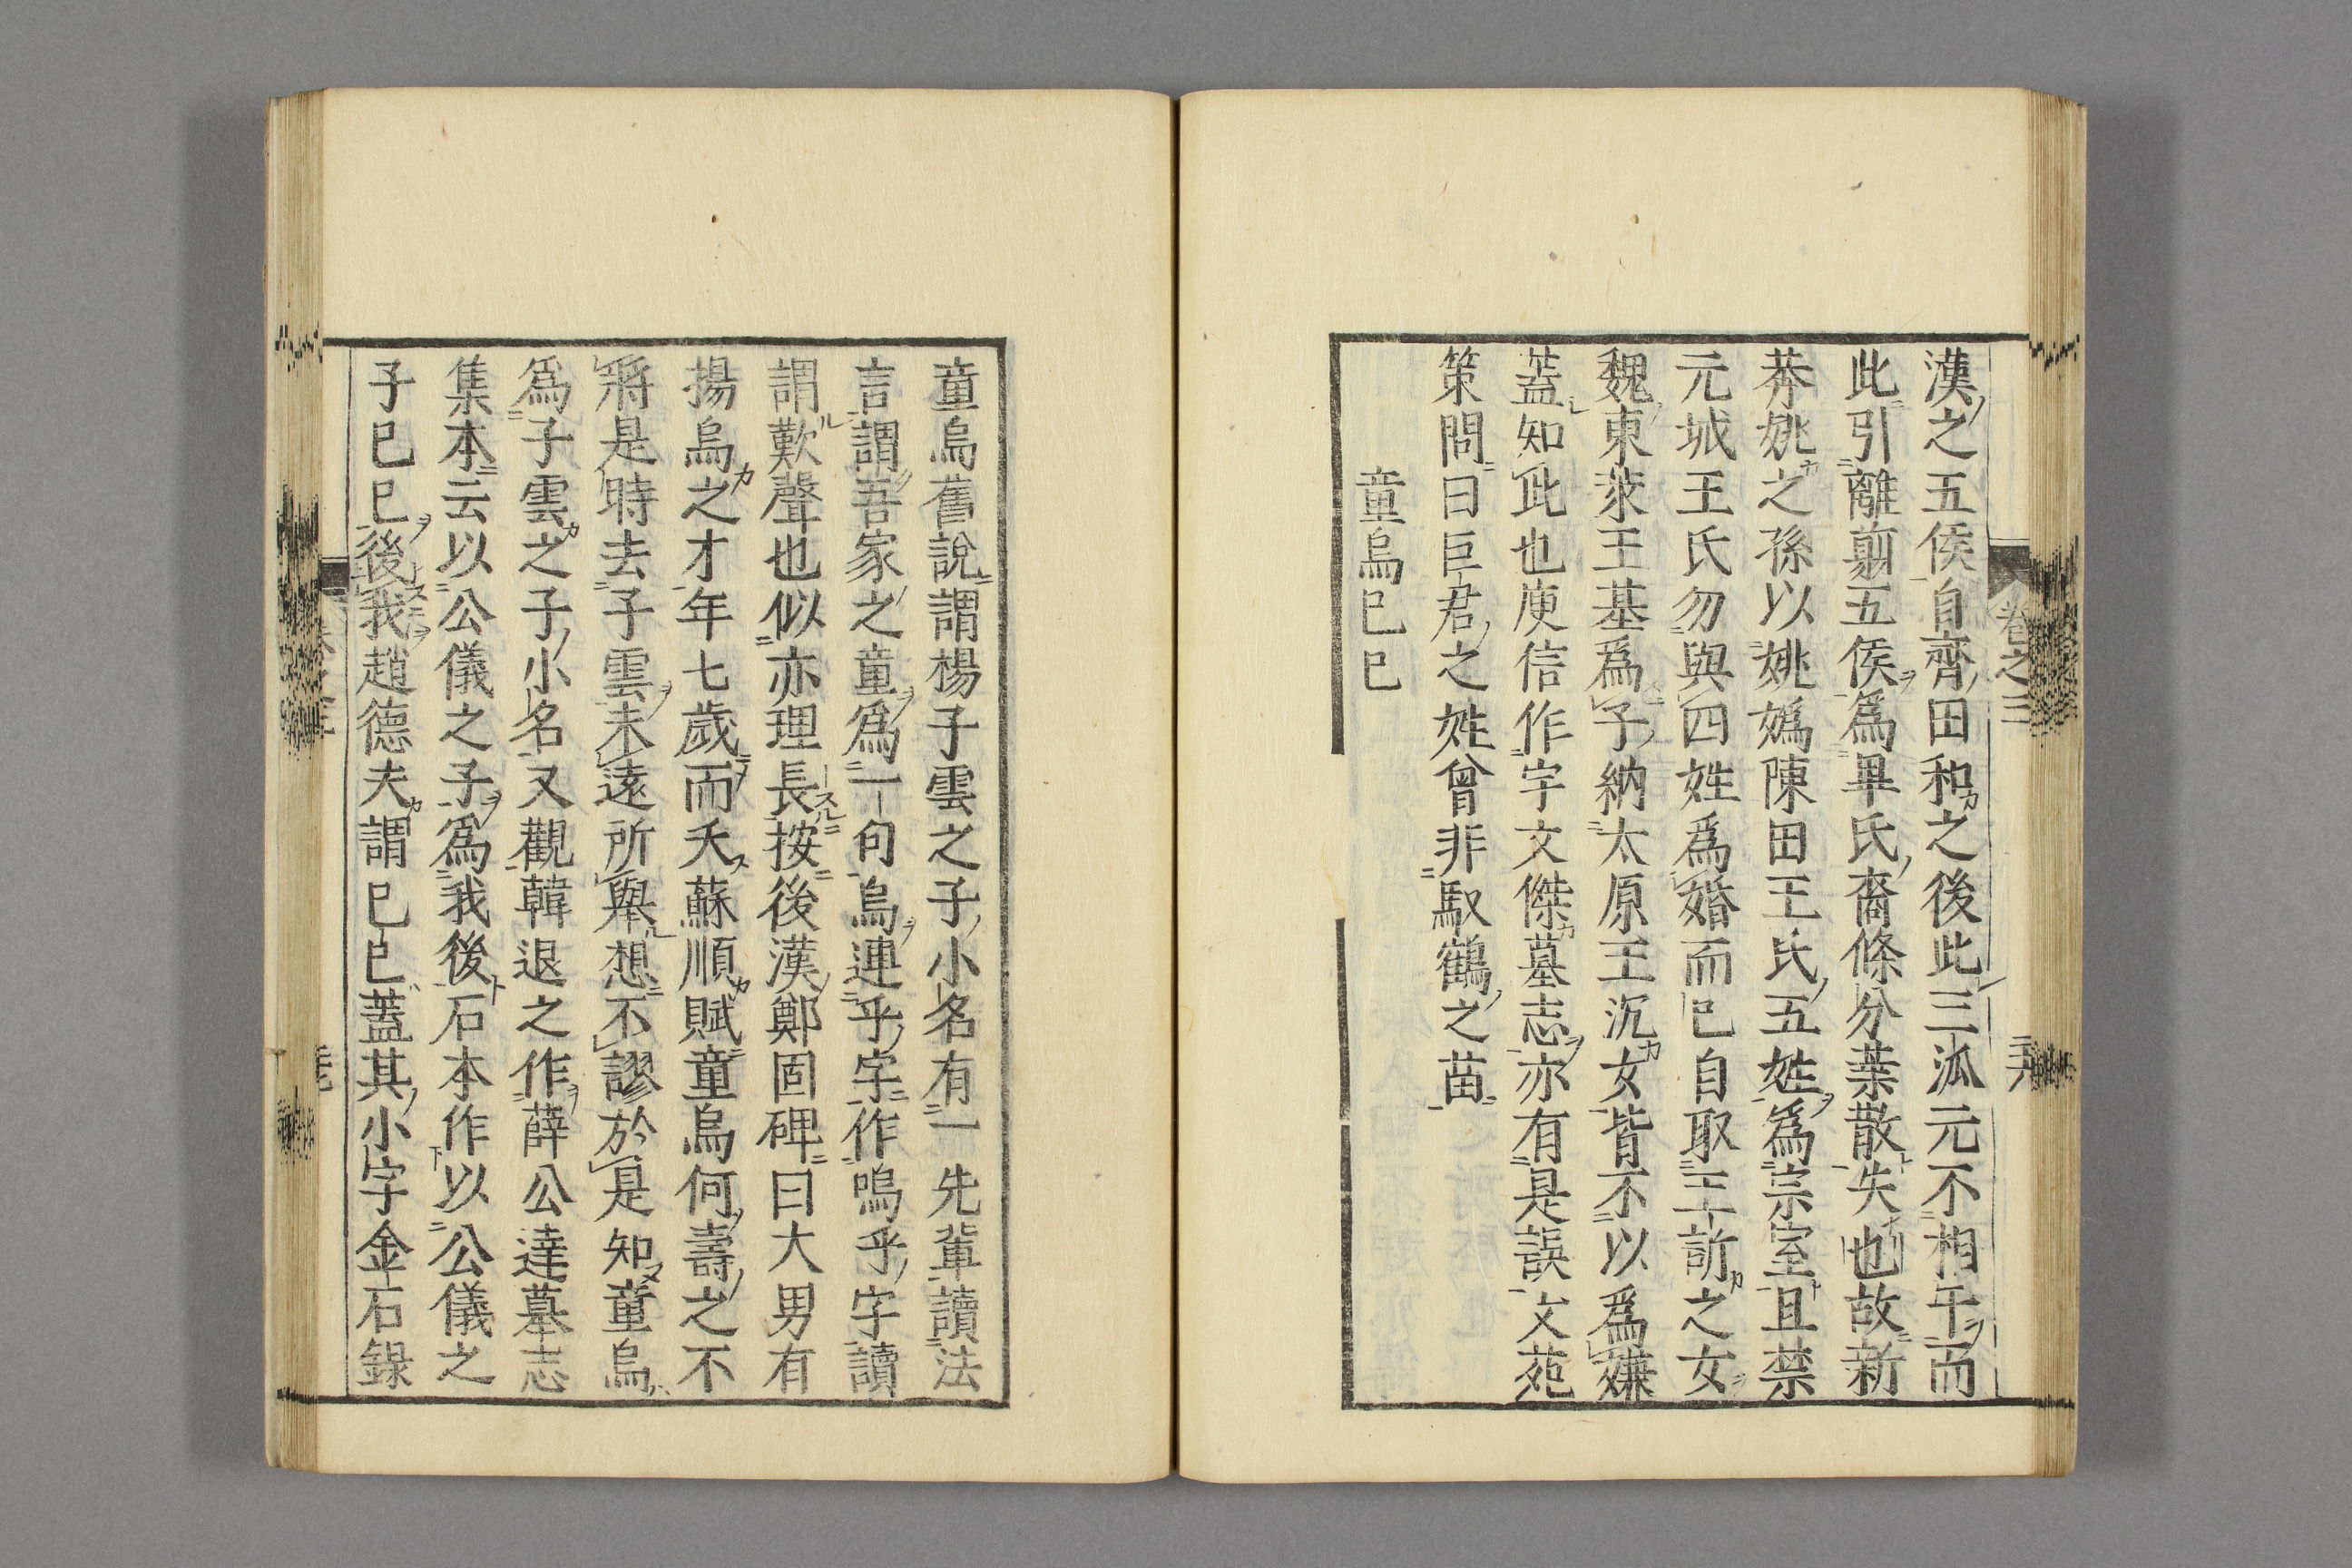 漢之五侯自齊田和之後此三派元不相干而
此引離翦五侯爲畢氏裔條分葉散失也故新
莽姚之孫以姚嬀陳田王氏五姓爲宗室且禁
元城王氏勿與四姓爲婚而已自取王訢之女
魏東萊王基爲子納太原王沉女皆不以爲嫌
蓋知此也庾信作宇文傑墓志亦有是誤文苑
策問曰巨君之姓曾非馭鶴之苗
童烏已已
卷之三
童烏舊說謂楊子雲之子小名有一先輩讀法
言謂吾家之童爲一句烏連乎字作嗚乎字讀
謂歎聲也似亦理長按後漢鄭固碑曰大男有
揚烏之才年七歲而夭蘇順賦童烏何壽之不
將是時去子雲未遠所舉想不謬於是知童烏
爲子雲之子小名又觀韓退之作薛公達墓志
集本云以公儀之子爲我後石本作以公儀之
子已已後我趙德夫謂已已蓋其小字金石錄